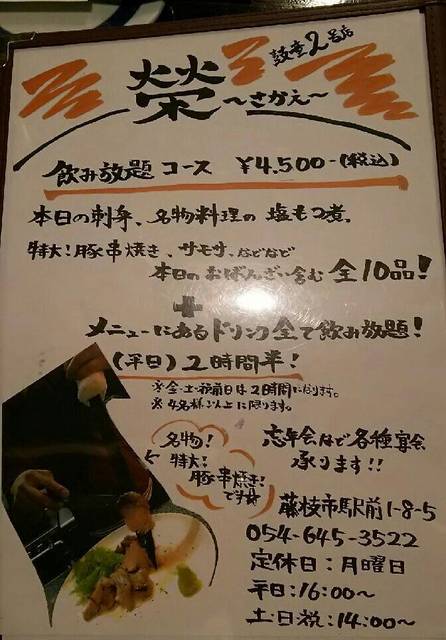 鼓童2号店
榮
～さかえ～
飲み放題コース ￥4,500-(税込)
本日の刺身、名物料理の塩もつ煮。
特大!豚串焼き、サモサ、などなど
本日のおばんざい含む 全10品!
+
メニューにあるドリンク全て飲み放題!
(平日) 2時間半!
※金・土・祝前日は2時間になります。
※4名様以上に限ります。
名物!
特大!
豚串焼き!
です
忘年会など各種宴会
承ります!!
藤枝市駅前1-8-5
054-645-3522
定休日:月曜日
平日:16:00～
土日祝:14:00～